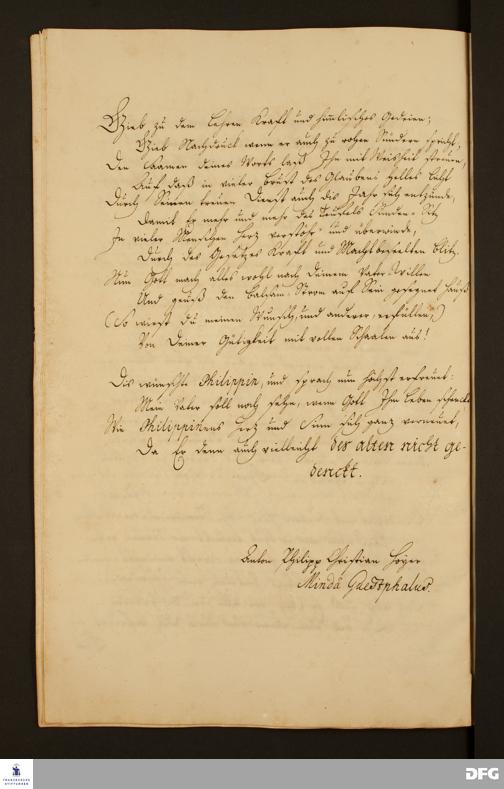 Gieb zu dem Lehren Krafft und himlisches Gedeien;
Gieb Nachdruck wenn er auch zu rohen Sündern spricht,
Den Saamen deines Worts laß Ihn mit Weisheit streuen,
Auf daß in vieler Brust des Glaubens helles Licht
Durch Seinen treuen Dienst auch dis Jahr sich entzünde,
Damit Er mehr und mehr des Teufels Sünden-Sitz
In vieler Menschen Hertz verstöhr und überwinde,
Durch des Gesetzes Krafft und Macht beseelten Blitz.
Nun Gott mach alles wohl nach deinem Vater-Willen
Und geuß den Balsam-Strom auf Sein gesegnet Hauß
(So wirst du meinen Wunsch, und anderer, erfüllen,)
Von Deiner Gütigkeit mit vollen Schaalen aus!
Dis wünschte Philippin, und sprach nun höchst erfreut:
Mein Vater soll noch sehn, wenn Gott Ihm Leben schenckt
Wie Philippinens Hertz und Sinn sich gantz verneuert,
Da Er denn auch vielleicht der alten nicht ge-
denckt.
Anton Philipp Christian Höyer
Mindâ Guestphalus.
FRANCKESCHE STIFTUNGEN
DFG